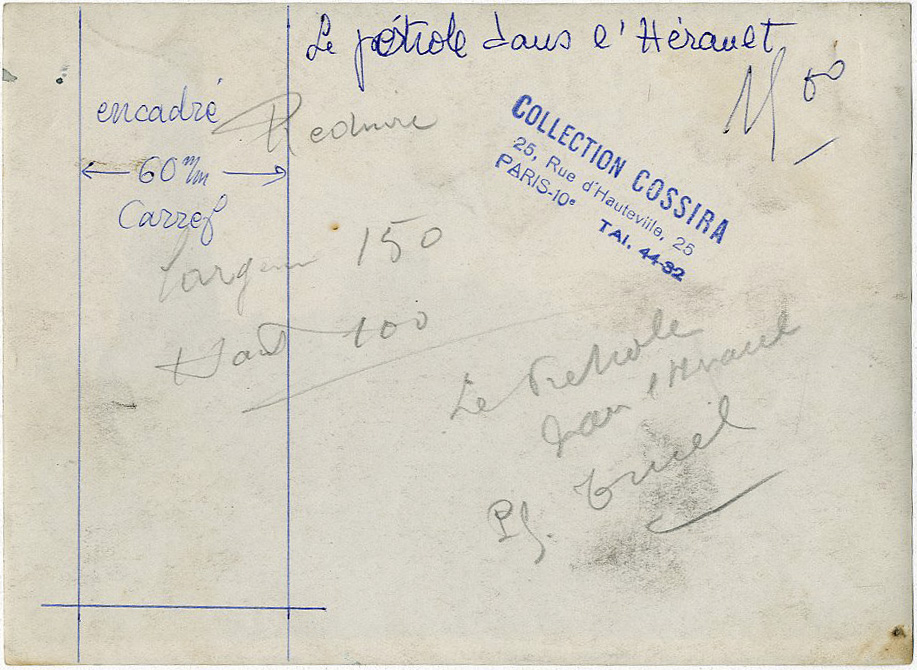 Le pétrole dans l'Hérault
encadré
60 m/m
Carré
Reduire
COLLECTION COSSIRA
25, Rue d'Hauteville, 25
PARIS-10e TAI. 44-32
largeur 150
Haut 100
Le Petrole
dans l'Herault
Ph.